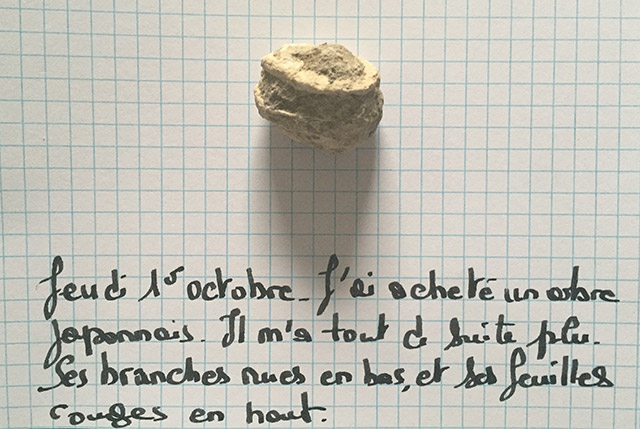 Jeudi 1er octobre. J'ai acheté un arbre
japonnais. Il m'a tout de suite plu.
Ses branches nues en bas, et ses feuilles
rouges en haut.